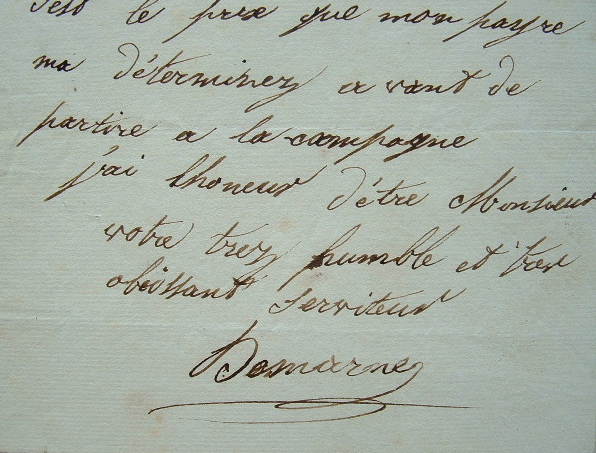 sest le prix que mon payre
ma déterminez avant de
partire a la campagne
j'ai lhoneur d'étre Monsieur
votre trez humble et trez
obeissant serviteur
Demarne